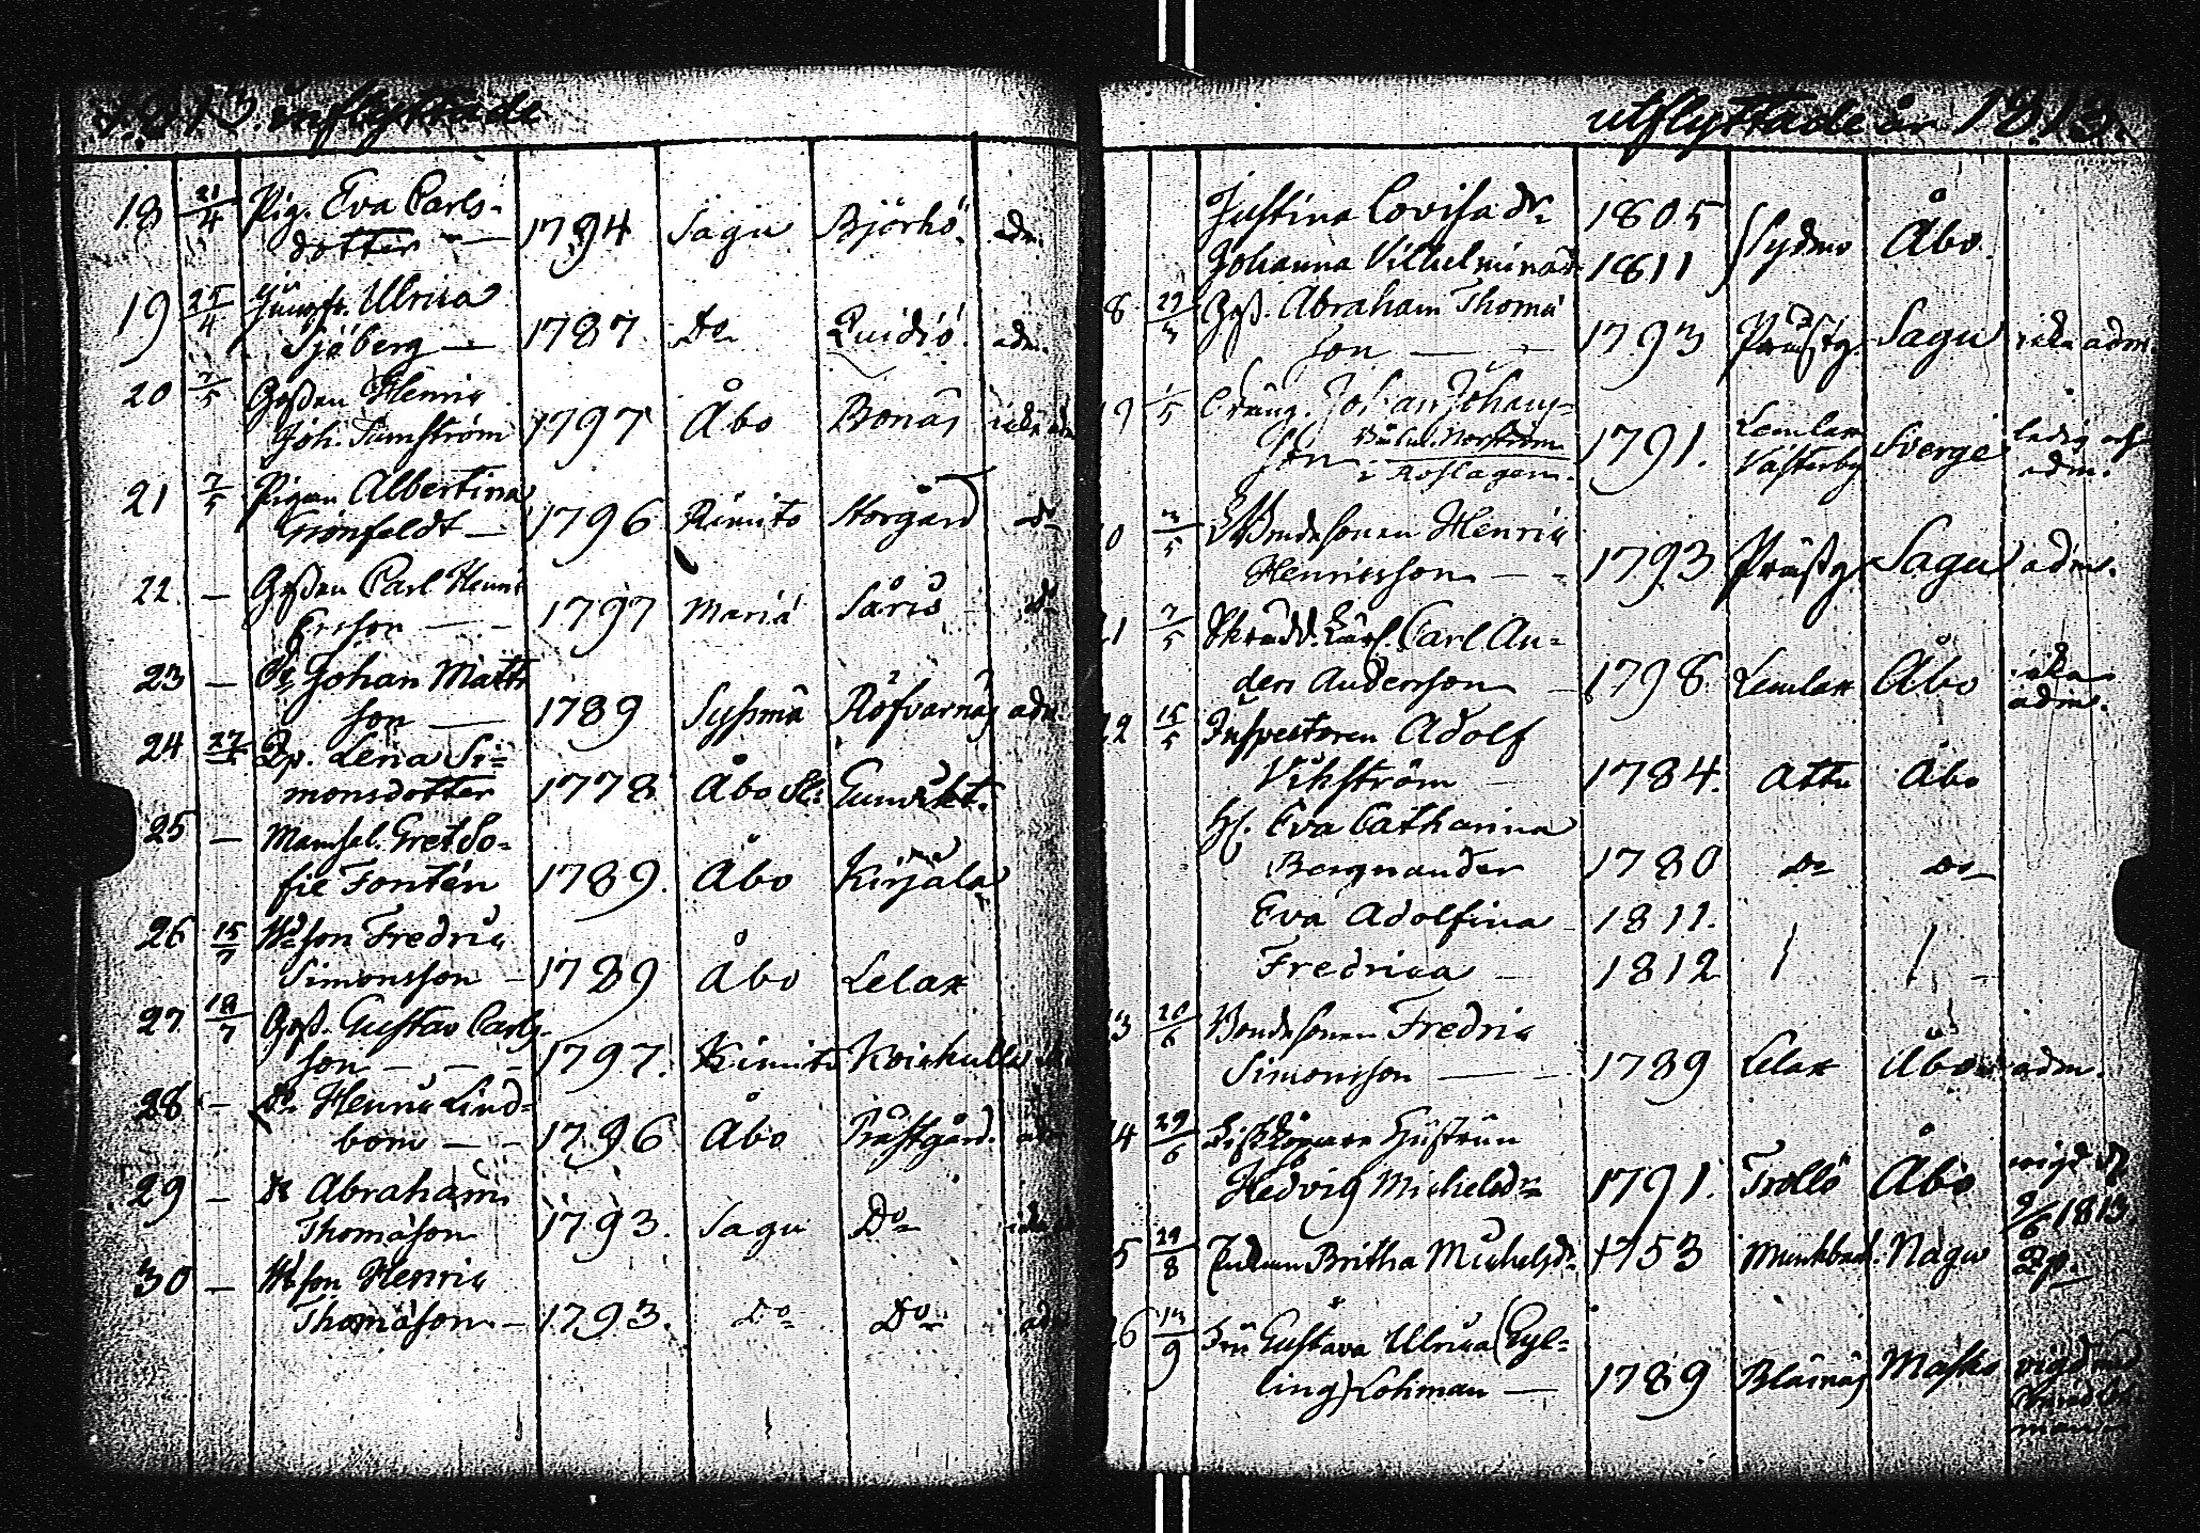 1813 inflyttade
18 21/4 Pig. Eva Carls-
dotter — 1794 Sagu Björkö. do.
19 25/4 Jungfr. Ulrica
Sjöberg — 1787 Do Qvidiö. adm.
20 7/5 Goßen Henric
Joh. 1797 Åbo Bonäs icke adm
21 7/5 Pigan Albertina
Grönfeldt — 1796 Kimito Storgård do
22 — Goßen Carl Henric
Ersson — 1797 Mariæ Såris do
23 — Do Johan Matts
son — 1789 Syßmä Röfvarnäs adm.
24 27/5 Lena Si-
monsdotter 1778 Åbo Sl: Gunvikt.
25 — Mamsel. Gret So-
fie Fontén 1789. Åbo Kirjala
26 15/7 Bdeson Fredric
Simonsson — 1789 Åbo Lelax
27 18/7 Goß. Gustav Carls-
son — — 1797. Kimito Koirkulla
28 — Do. Henric Lind-
bom — — 1796 Åbo Prästgård. adm
29 — Do Abraham
Thomasson 1793. Sagu Do icke
30 — Bdeson Henric
Thomasson — 1793. Do Do adm
utflyttade år 1813.
Justina Lovisa dr. 1805
Johanna Vilhelmina d. 1811 Sydmo Åbo.
8 29/3 Goß. Abraham Thoma
son — — 1793 Prästg. Sagu icke adm.
9 1/5 Dräng. Johan Johans-
son Norström
i Roslagen. 1791. Lemlax
Västerby Sverge ledig och
adm.
0 3/5 Bondesonen Henric
Henricsson — — 1793 Prästg. Sagu adm.
21 7/5 Skrädd. Lärl. Carl An-
ders Andersson — 1798 Lemlax Åbo icke
adm.
22 15/5 Inspectoren Adolf
Vikström — 1784. Attu Åbo
H. Eva Catharina
Bergnander 1780 Do Do
Eva Adolfina — 1811.
Fredrica — 1812
3 20/6 Bondesonen Fredric
Simonsson — — 1789 Lelax Åbo adm.
4 29/6 Fiskköpare Hustrun
Hedvig Michelsdr 1791. Trollö Åbo vigd d.
9/6 1813.
5 29/8 Britha Michelsdr. 1753 Munkbad. Nagu
26 13/9 Fru Gustava Ulrica (Gyl-
ling) Lohman — 1789 Blåsnäs Masko vigd med